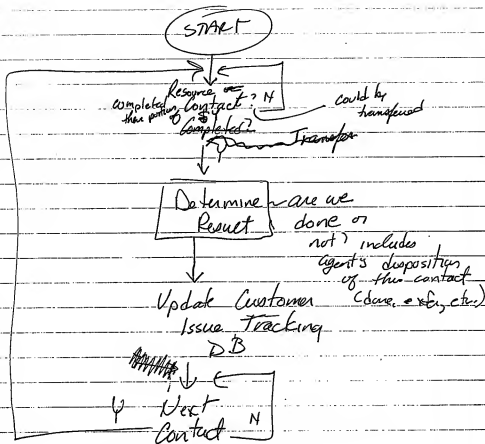 START
Resource
completed
their portion of Contact? N
could be
transferred
Completed?
Y
Transfer
Determine
Result
are we
done or
not? includes
agent's disposition
of this contact
(done, xfer, etc.)
Update Customer
Issue Tracking
DB
Y Next N
Contact